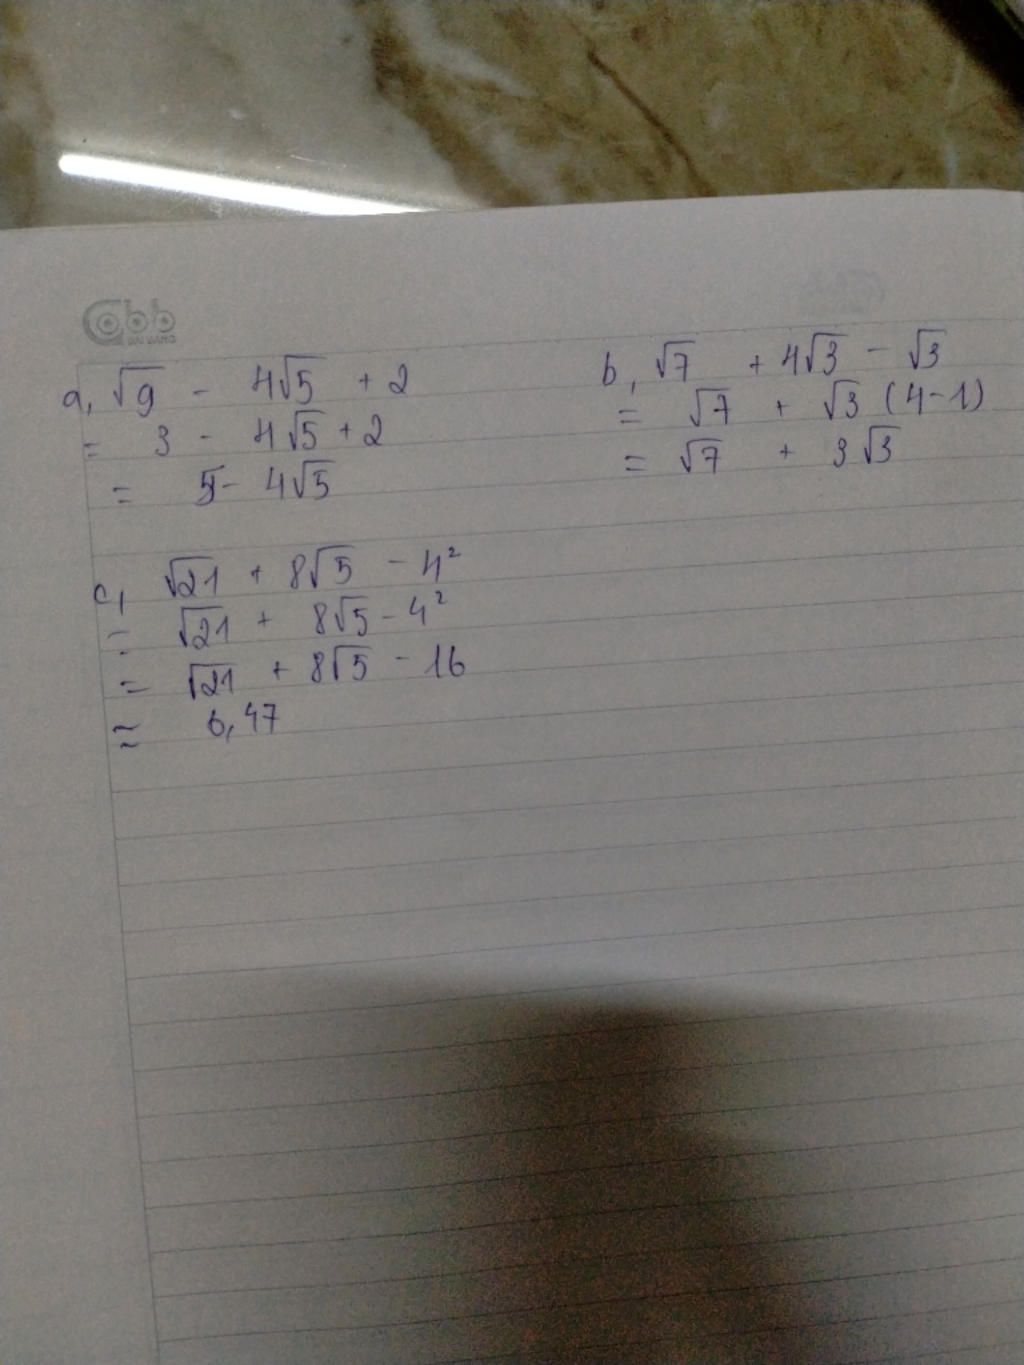 abb
a, √9 - 4√5 + 2
= 3 - 4√5 + 2
= 5 - 4√5
b, √7 + 4√3 - √3
= √7 + √3 (4-1)
= √7 + 3√3
c, √21 + 8√5 - 4²
= √21 + 8√5 - 4²
= √21 + 8√5 - 16
≈ 6,47